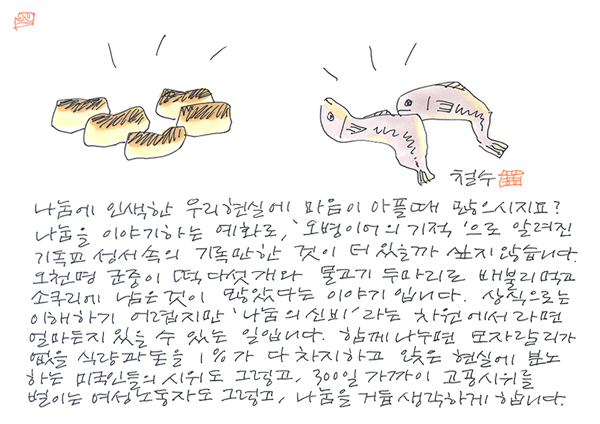 철수
나눔에 인색한 우리현실에 마음이 아플때 많으시지요?
나눔을 이야기하는 예화로, '오병이어의 기적'으로 알려진
기독교 성서속의 기록만한 것이 더 있을까 싶지 않습니다.
오천명 군중이 떡 다섯개와 물고기 두마리로 배불리먹고
소쿠리에 남은것이 많았다는 이야기 입니다. 상식으로는
이해하기 어렵지만 '나눔의 신비'라는 차원에서라면
얼마든지 있을 수 있는 일입니다. 함께 나누면 모자람이
없을 식량과 돈을 1%가 다 차지하고 있는 현실에 분노
하는 미국인들의 시위도 그렇고, 300일 가까이 고공시위를
벌이는 여성노동자도 그렇고, 나눔을 거듭 생각하게 합니다.